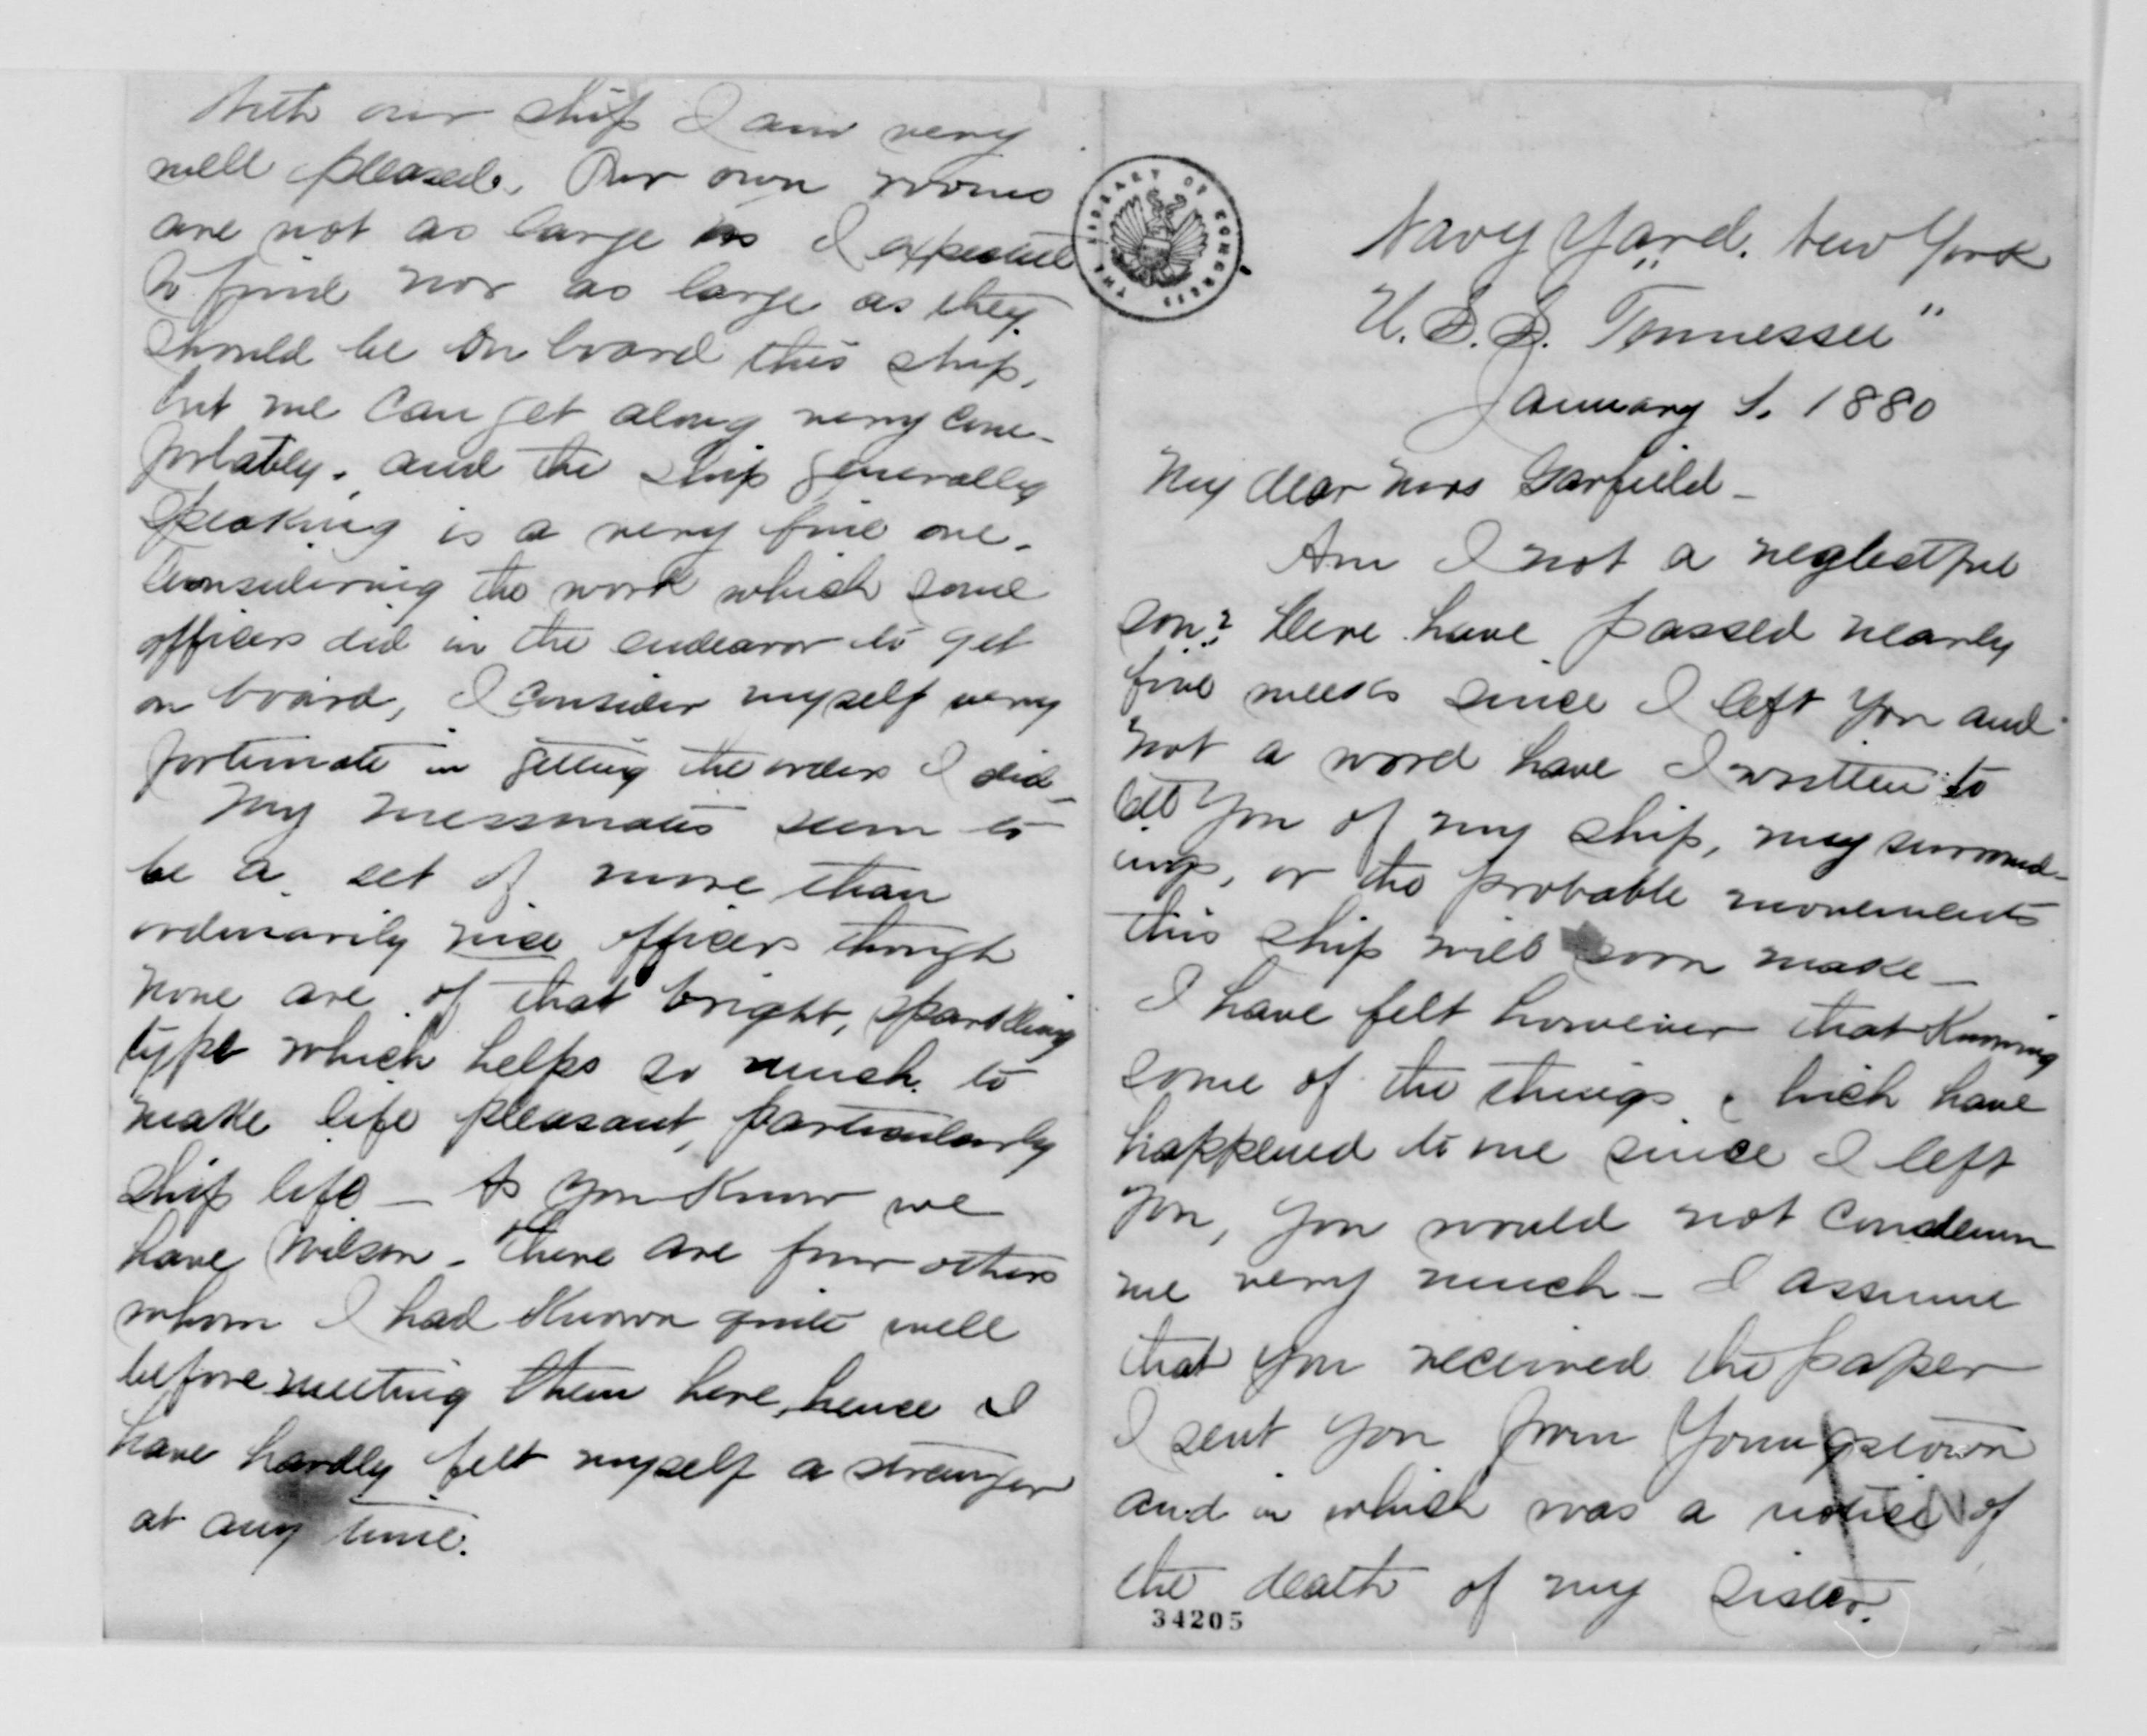 Navy Yard. New York
U.S.S. "Tennessee"
January 1. 1880
My dear Mrs Garfield –
Am I not a neglectful
son? Here have passed nearly
five weeks since I left you and
not a word have I written to
tell you of my ship, my surround-
ings, or the probable movements
this ship will soon make –
I have felt however that knowing
some of the things which have
happened to me since I left
you, you would not condemn
me very much – I assume
that you received the paper
I sent you from Youngstown
and in which was a notice of
the death of my sister.
34205
With our ship I am very
well pleased. Our own rooms
are not as large as I expected
to find nor as large as they
should be on board this ship,
but we can get along very com-
fortably. and the ship generally
speaking is a very fine one.
Considering the work which some
officers did in the endeavor to get
on board, I consider myself very
fortunate in getting the orders I did –
My messmates seem to
be a set of more than
ordinarily nice officers though
none are of that bright, sparkling
type which helps so much to
make life pleasant, particularly
ship life – As you know we
have Wilson – There are four others
whom I had known quite well
before meeting them here, hence I
have hardly felt myself a stranger
at any time.
THE LIBRARY OF CONGRESS